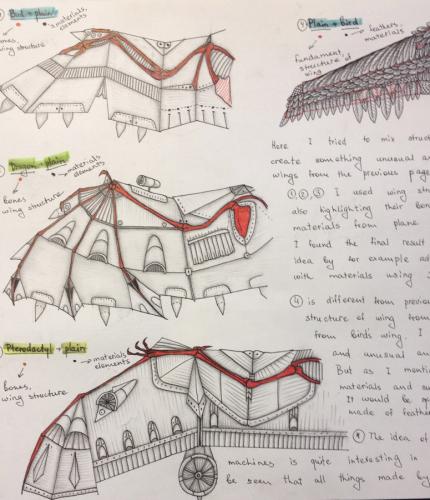 ① Bird + plain
materials,
elements
bones,
wing structure
④ Plain + Bird
feathers,
materials
fundament,
structure of
wing
Dragon + plain
materials
elements
bones
wing structure
Pterodactyl + plain
materials
elements
bones,
wing structure
Here I tried to mix struct
create something unusual an
wings from the previous page
①,②,③ I used wing str
also highlighting their bon
materials from plane
I found the final result
idea by for example ad
with materials using
④ is different from previou
structure of wing from
from birds wing. I
and unusual an
But as I mentio
materials and su
It would be
made of feather
The idea of
machines is quite interesting in
be seen that all things made by